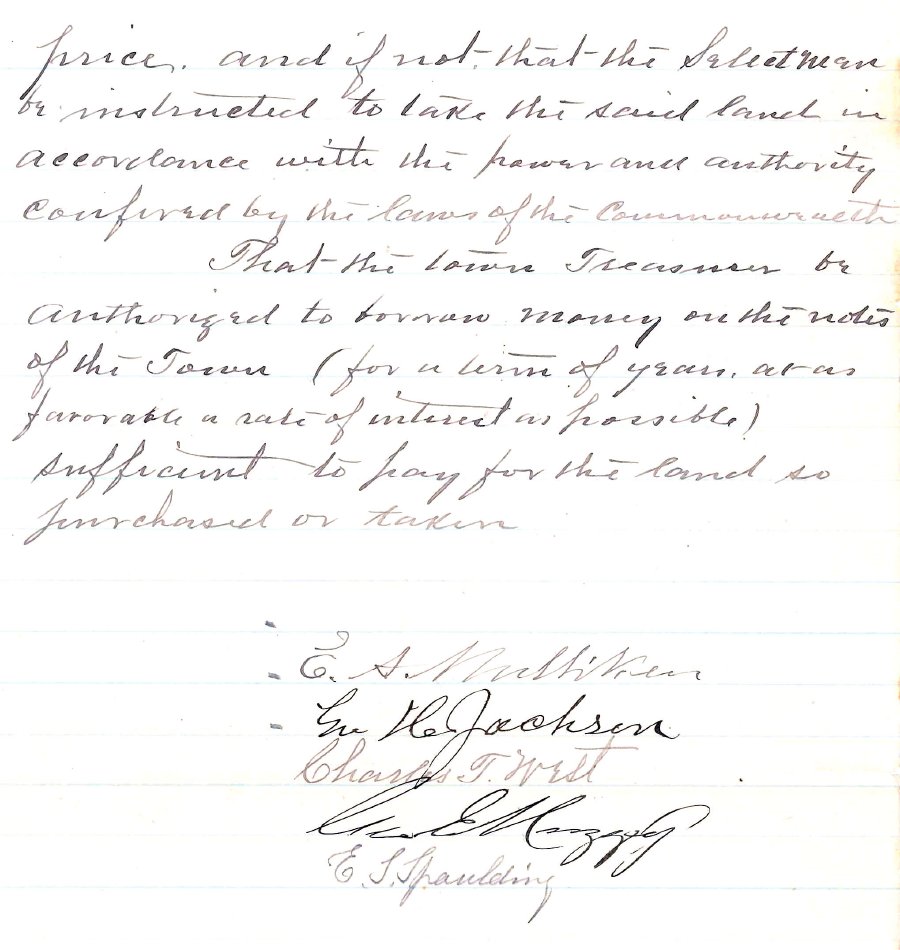 price. and if not. that the Selectmen
be instructed to take the said land in
accordance with the power and authority
confired by the laws of the Commonwealth
That the town Treasurer be
authorized to borrow money on the notes
of the Town (for a term of years, at as
favorable a rate of interest as possible)
sufficient to pay for the land so
purchased or taken
E. A. Mulliken
Geo H Jackson
Charles T. West
Geo E Muzzey
E. S. Spaulding